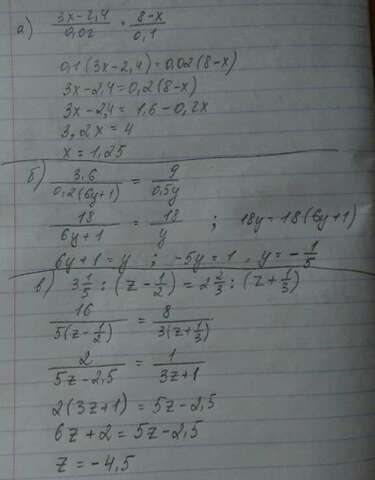 а) (3x-2,4)/0,02 = (8-x)/0,1
0,1(3x-2,4)=0,02(8-x)
3x-2,4=0,2(8-x)
3x-2,4= 1,6-0,2x
3,2x = 4
x = 1,25
б) 3,6/(0,2(6y+1)) = 9/(0,5y)
18/(6y+1) = 18/y ; 18y=18(6y+1)
6y+1=y ; -5y=1, y=-1/5
в) 3 1/5 : (z-1/2)=2 2/3 : (z+1/3)
16/(5(z-1/2)) = 8/(3(z+1/3))
2/(5z-2,5) = 1/(3z+1)
2(3z+1) = 5z-2,5
6z+2=5z-2,5
z = -4,5